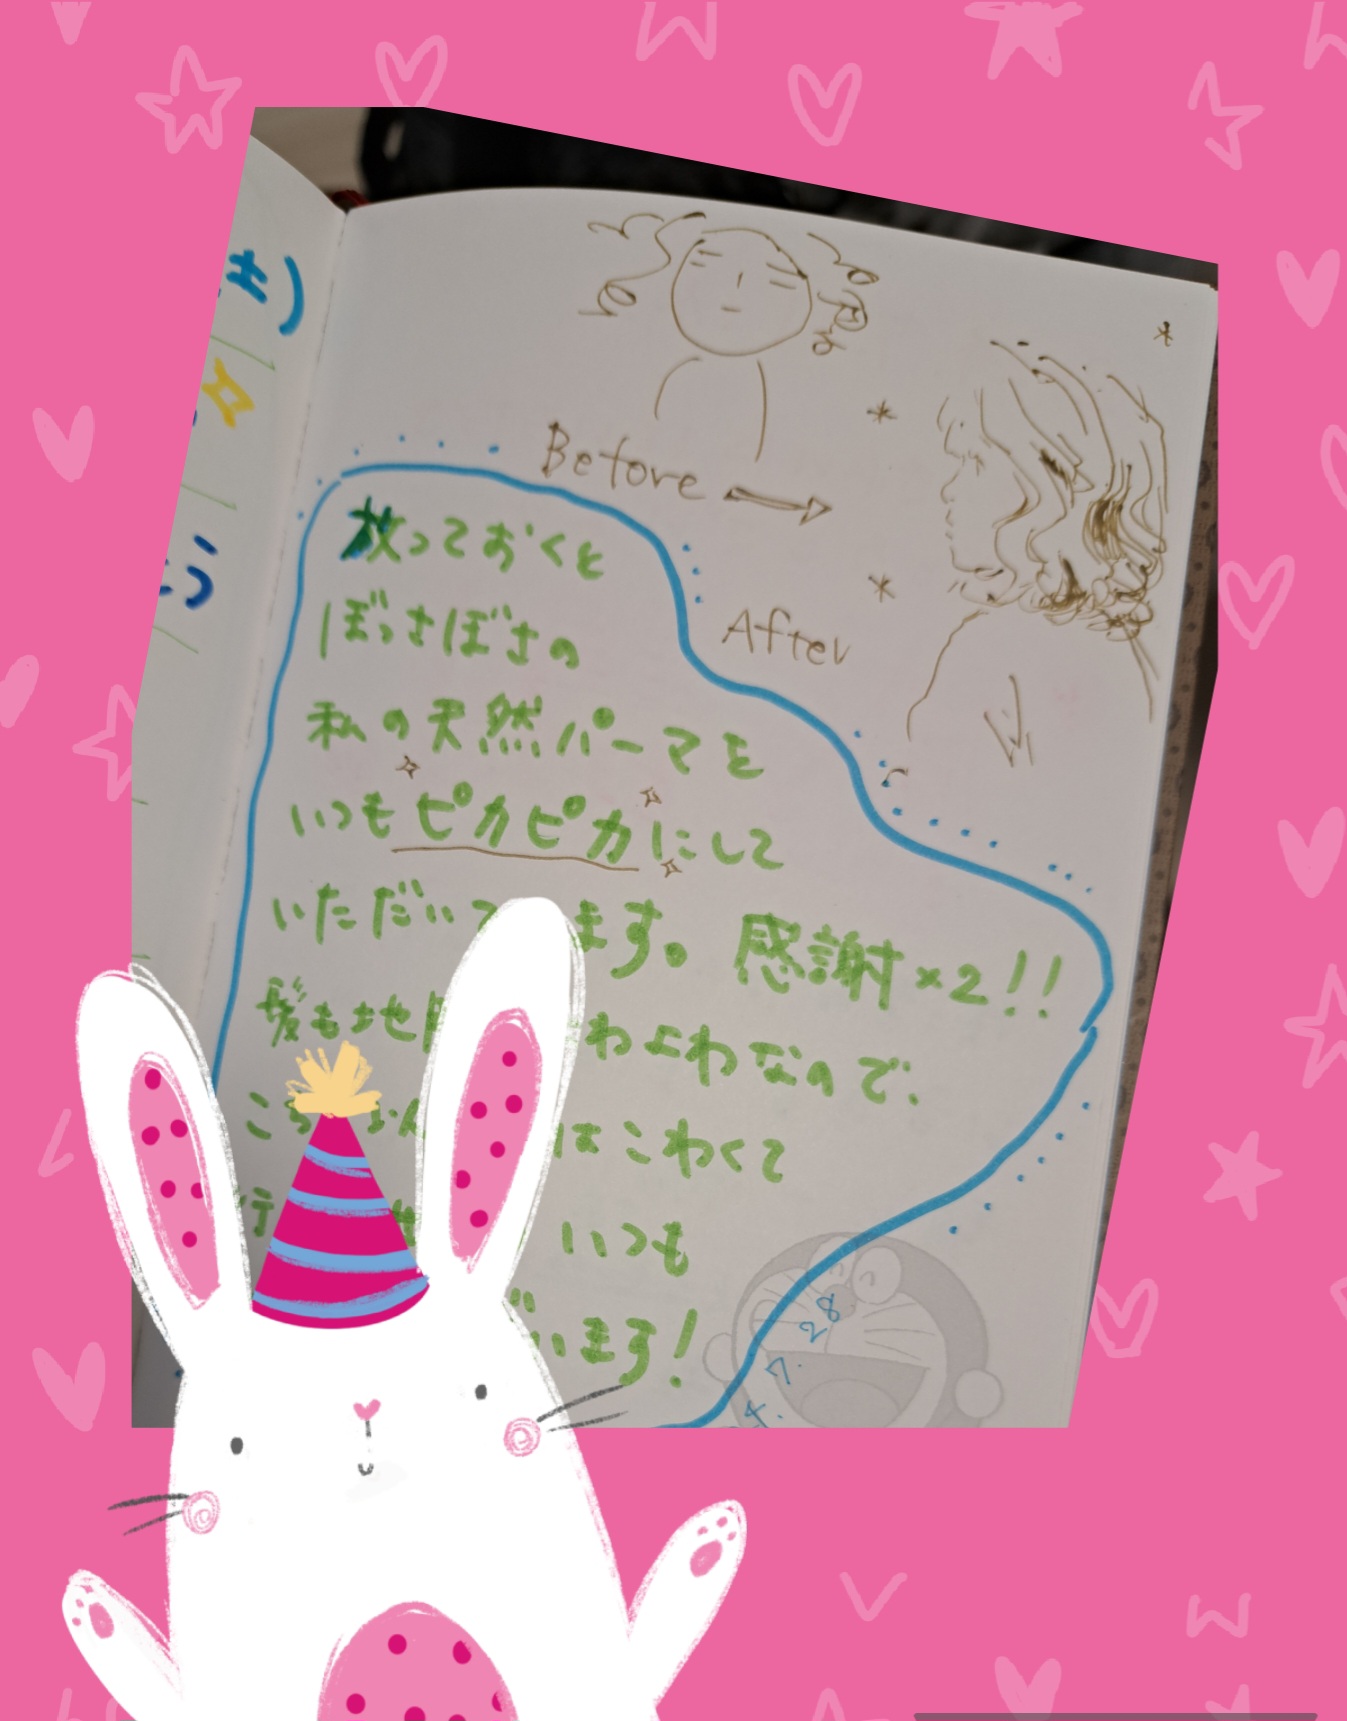 土)
う
Before →
After
放っておくと
ぼっさぼさの
私の天然パーマを
いつもピカピカにして
いただいて ます。感謝×2!!
髪も地 わよわなので、
こち はこわくて
行 いつも
います!
7. 28